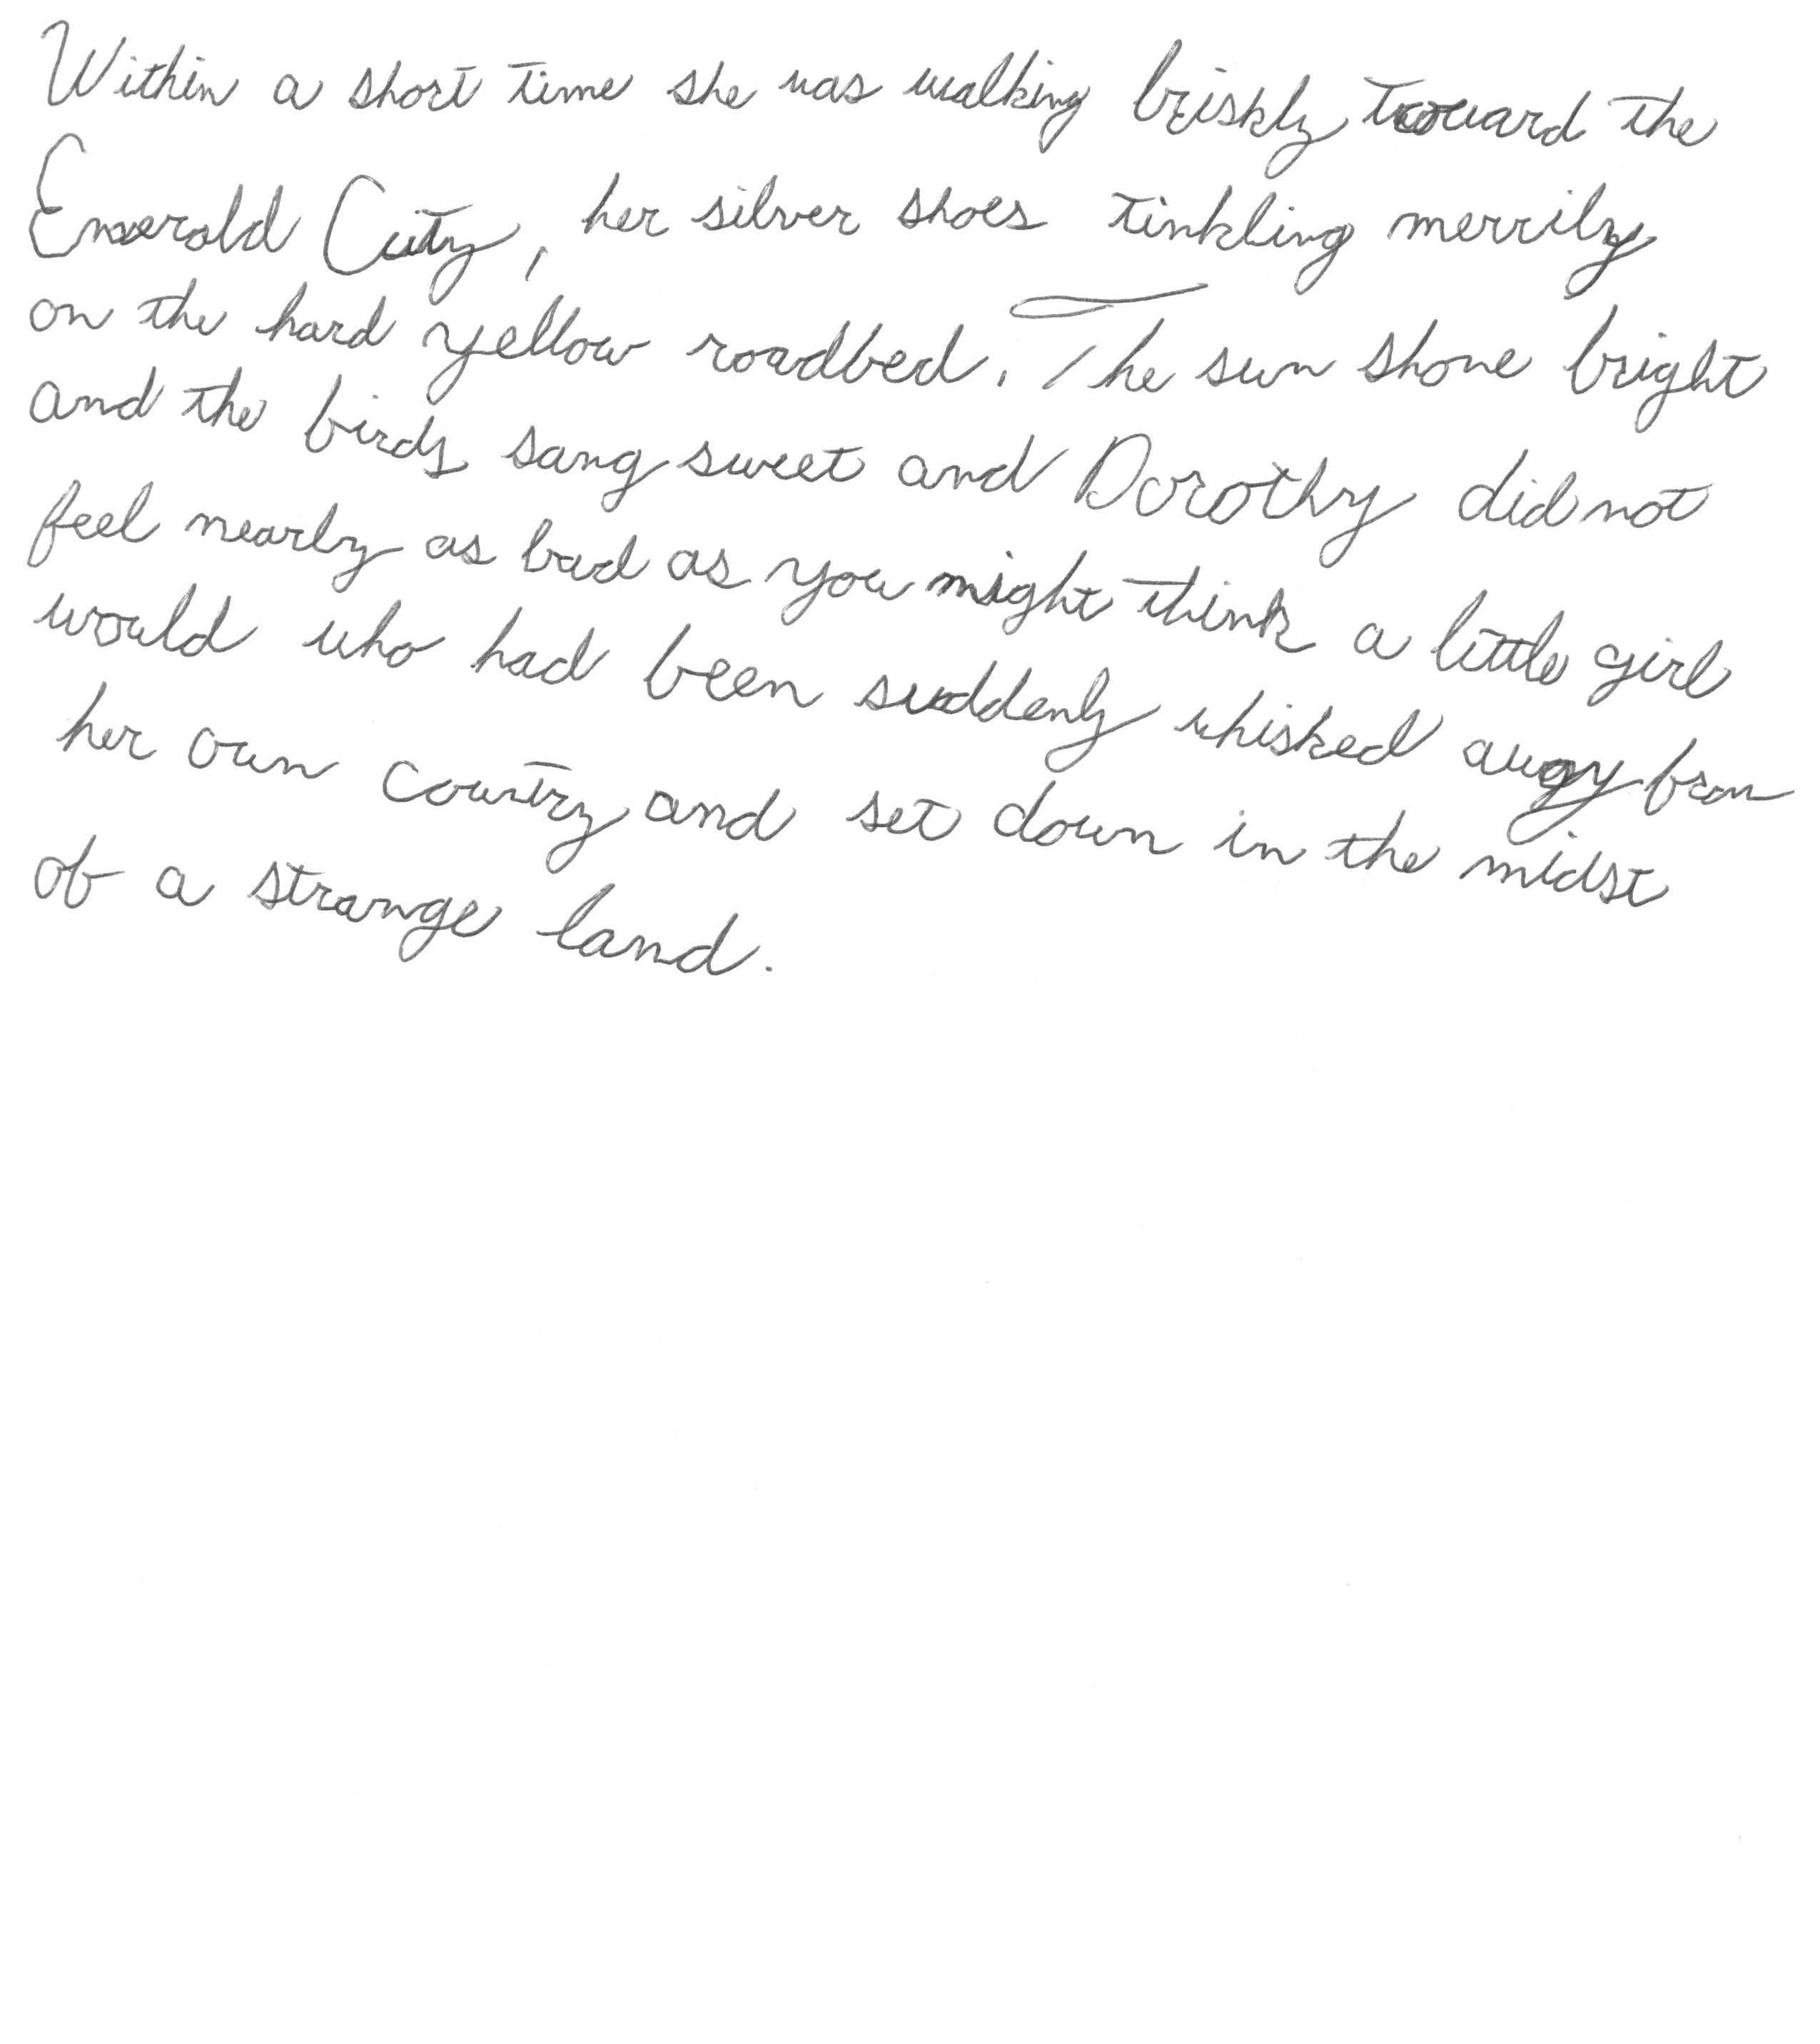 Within a short time she was walking briskly toward the
Emerald City, her silver shoes tinkling merrily
on the hard yellow roadbed. The sun shone bright
and the birds sang sweet and Dorothy did not
feel nearly as bad as you might think a little girl
would who had been suddenly whisked away from
her own country and set down in the midst
of a strange land.